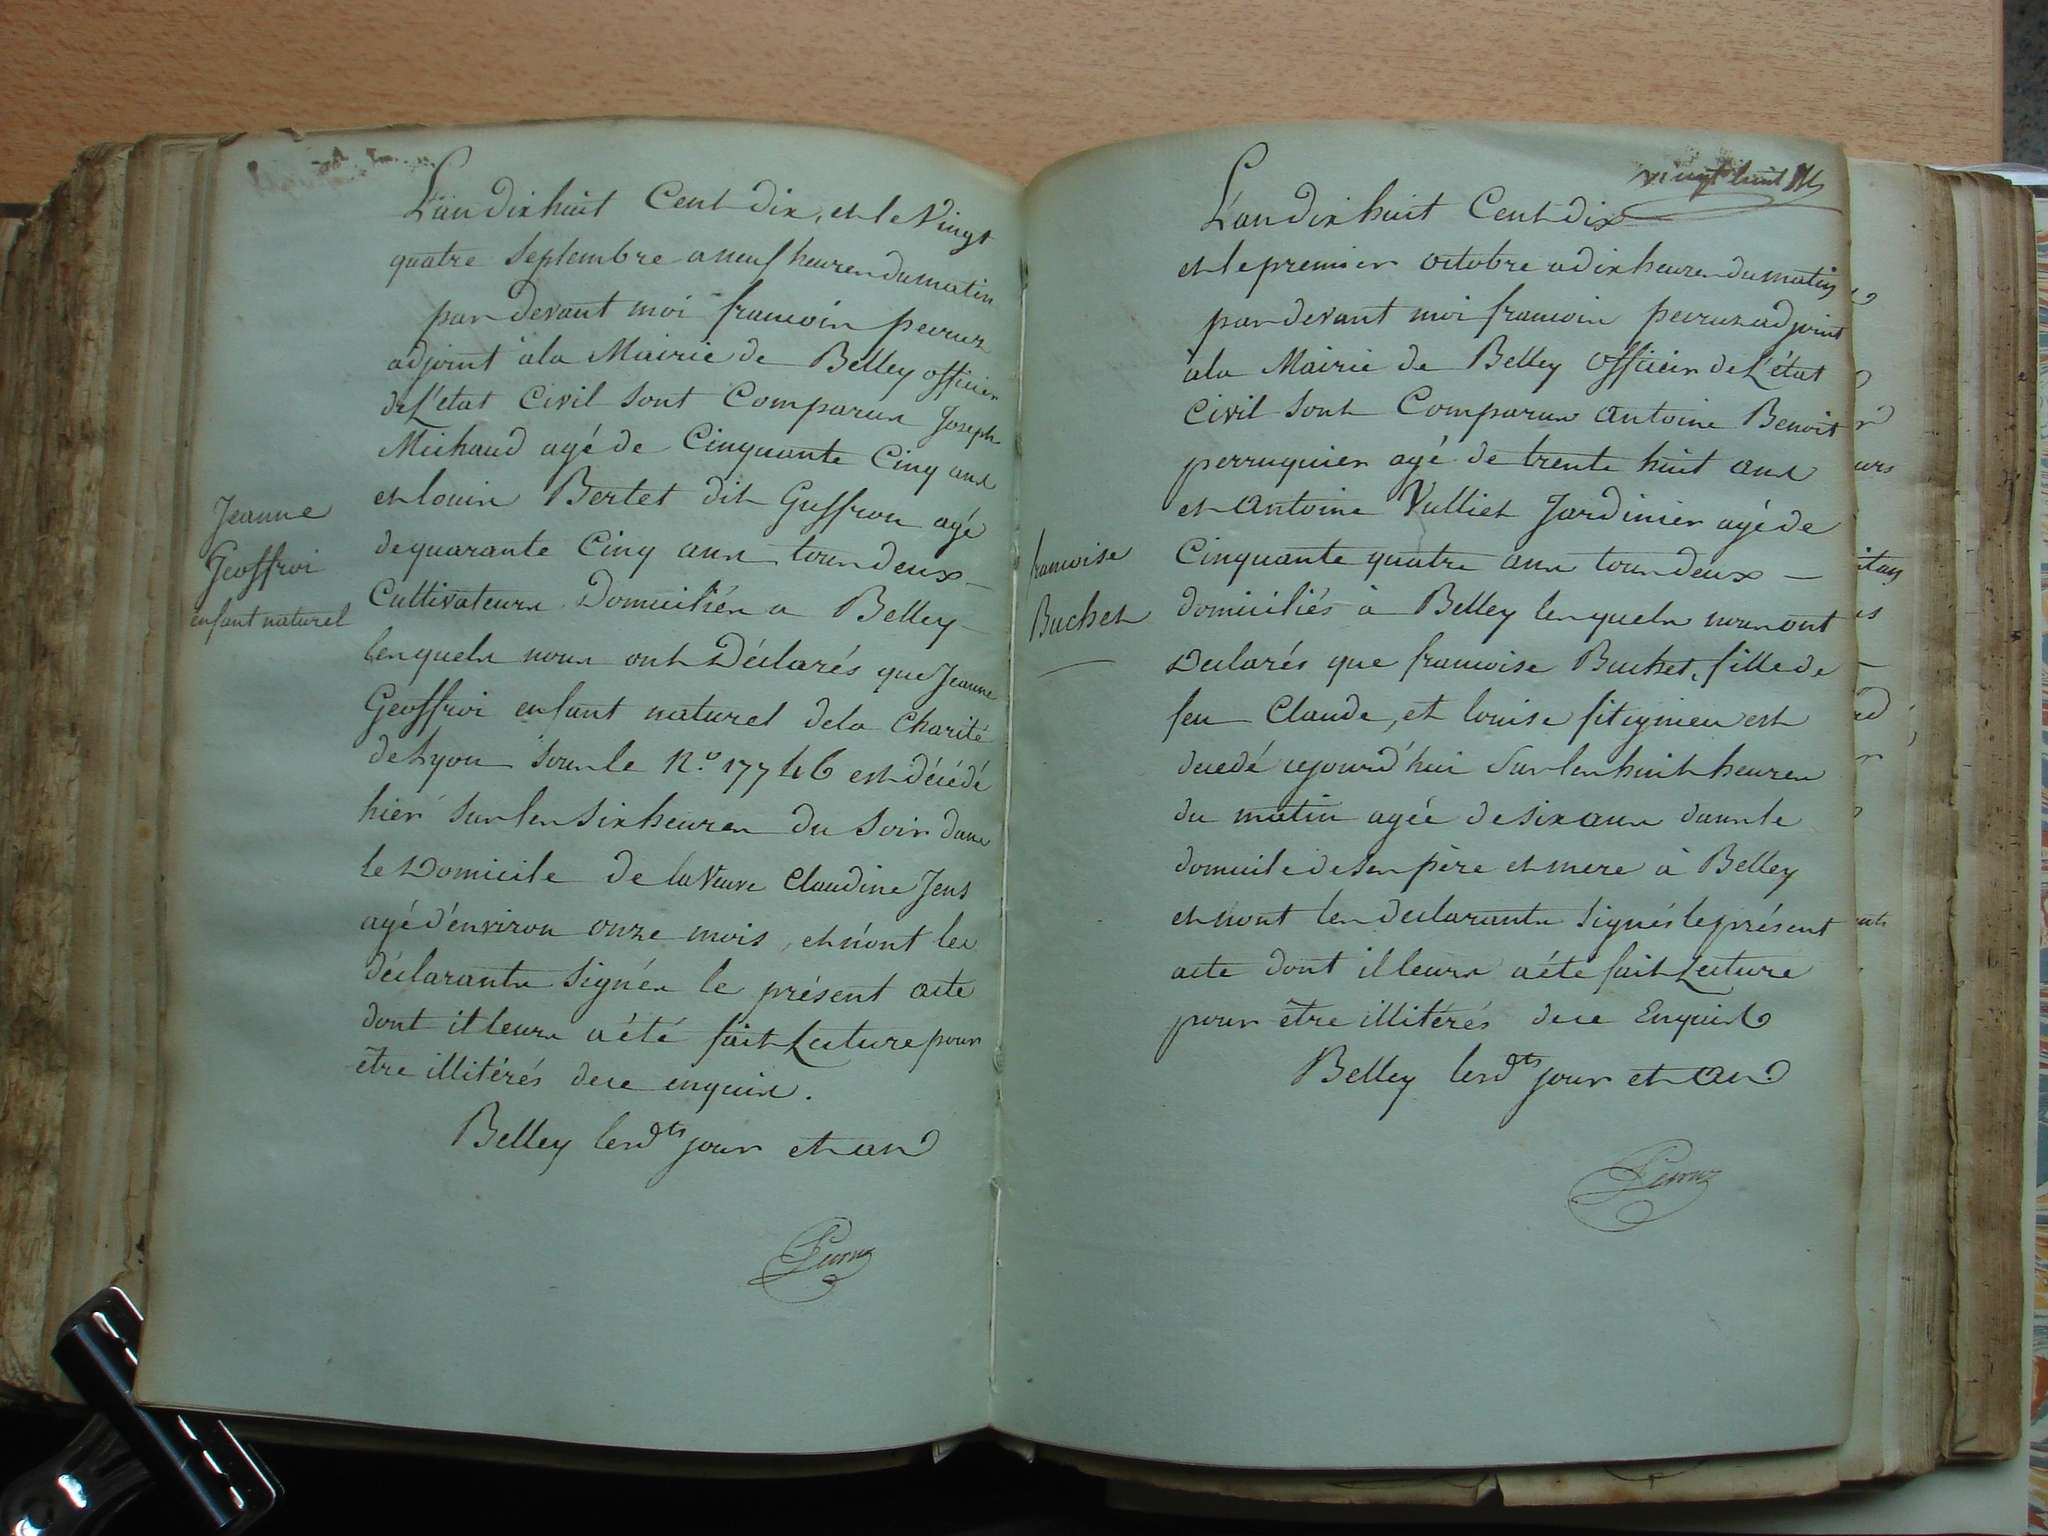 L'an dix huit Cent dix, et le Vingt
quatre Septembre a neuf heures du matin
par devant moi francois peyruz
adjoint à la Mairie de Belley officier
de L'état Civil sont Comparus Joseph
Michaud agé de Cinquante Cinq ans
et louis Bertet dit Guffrou agé
de quarante Cinq ans tous deux
Cultivateurs Domiciliés a Belley
lesquels nous ont Déclarés que Jeanne
Geoffroi enfant naturel de la Charité
de Lyon sous le N.o 17746 est décédé
hier sur les six heures du soir dans
le Domicile de la Veuve Claudine Jens
agé d'environ onze mois, et n'ont les
déclarants signés le présent acte
dont il leurs a été fait Lecture pour
être illitérés de ce enquis.
Belley les dts jour et an
Jeanne
Geoffroi
enfant naturel
vingt huit
L'an dix huit Cent dix
et le premier octobre a dix heures du matin
par devant moi francois peyruz adjoint
à la Mairie de Belley officier de L'état
Civil sont Comparus antoine Benoit
perruquier agé de trente huit ans
et antoine Vulliet Jardinier agé de
Cinquante quatre ans tous deux
domiciliés à Belley lesquels nous ont
Declarés que francoise Buchet, fille de
feu Claude, et louise fitignieu est
decedé aujourd'hui sur les huit heures
du matin agée de six ans dans le
domicile de ses père et mere à Belley
et n'ont les declarants signés le présent
acte dont il leurs a été fait Lecture
pour être illitérés de ce Enquis
Belley les dts jour et an
francoise
Buchet